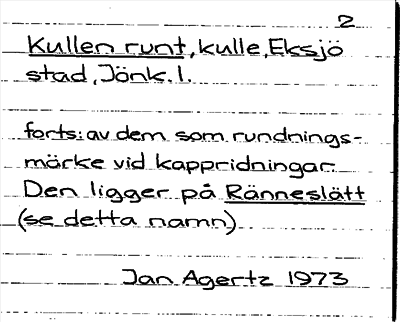 2
Kullen runt, kulle, Eksjö
stad, Jönk. l.
forts: av dem som rundnings-
märke vid kappridningar.
Den ligger på Ränneslätt
(se detta namn)
Jan Agertz 1973